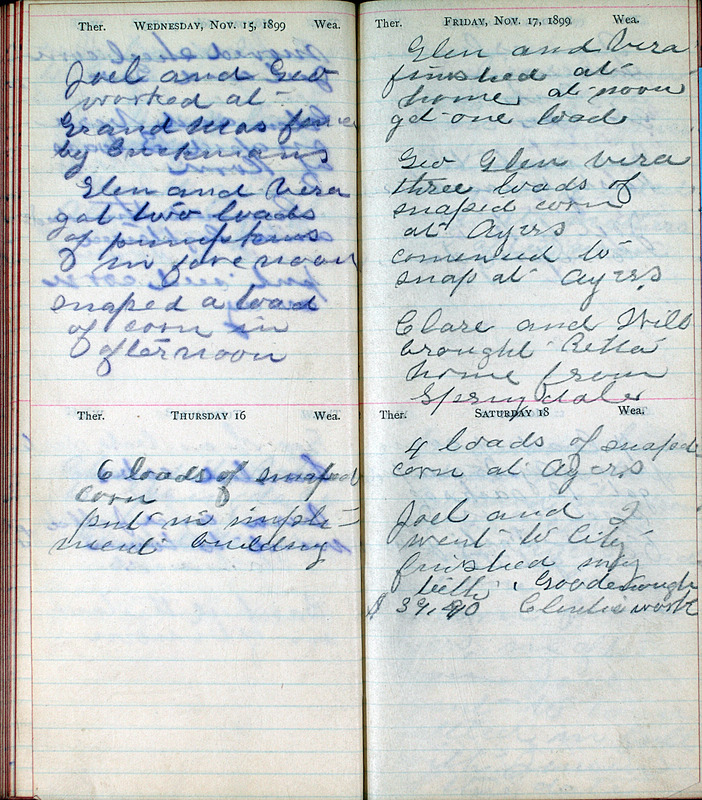 Ther. WEDNESDAY, NOV. 15, 1899 Wea.
Joel and Geo
worked at
Grand Mas fence
by
Glen and Vera
got two loads
of pumpkins
in forenoon
snaped a load
of corn in
afternoon
Ther. THURSDAY 16 Wea.
6 loads of snaped
corn
put in imple-
ment building
Ther. FRIDAY, NOV. 17, 1899 Wea.
Glen and Vera
finished at
home at noon
got one load
Geo Glen Vera
three loads of
snaped corn
at Ayers
comenced to
snap at Ayers
Clare and Will
brought Retta
home from
Springdale
Ther. SATURDAY 18 Wea.
4 loads of snaped
corn at Ayers
Joel and I
went to City
finished my
teeth. Goodenough
$ 39.40 work